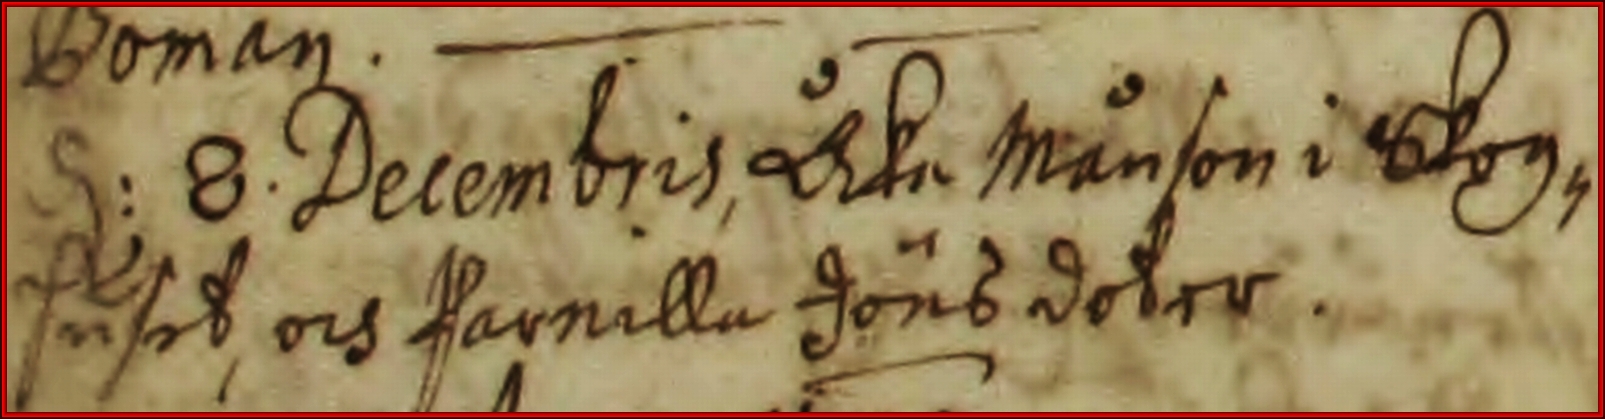 Boman.
8. Decembris, Åke Månson i Skog,
och Pernilla Jöns doter.